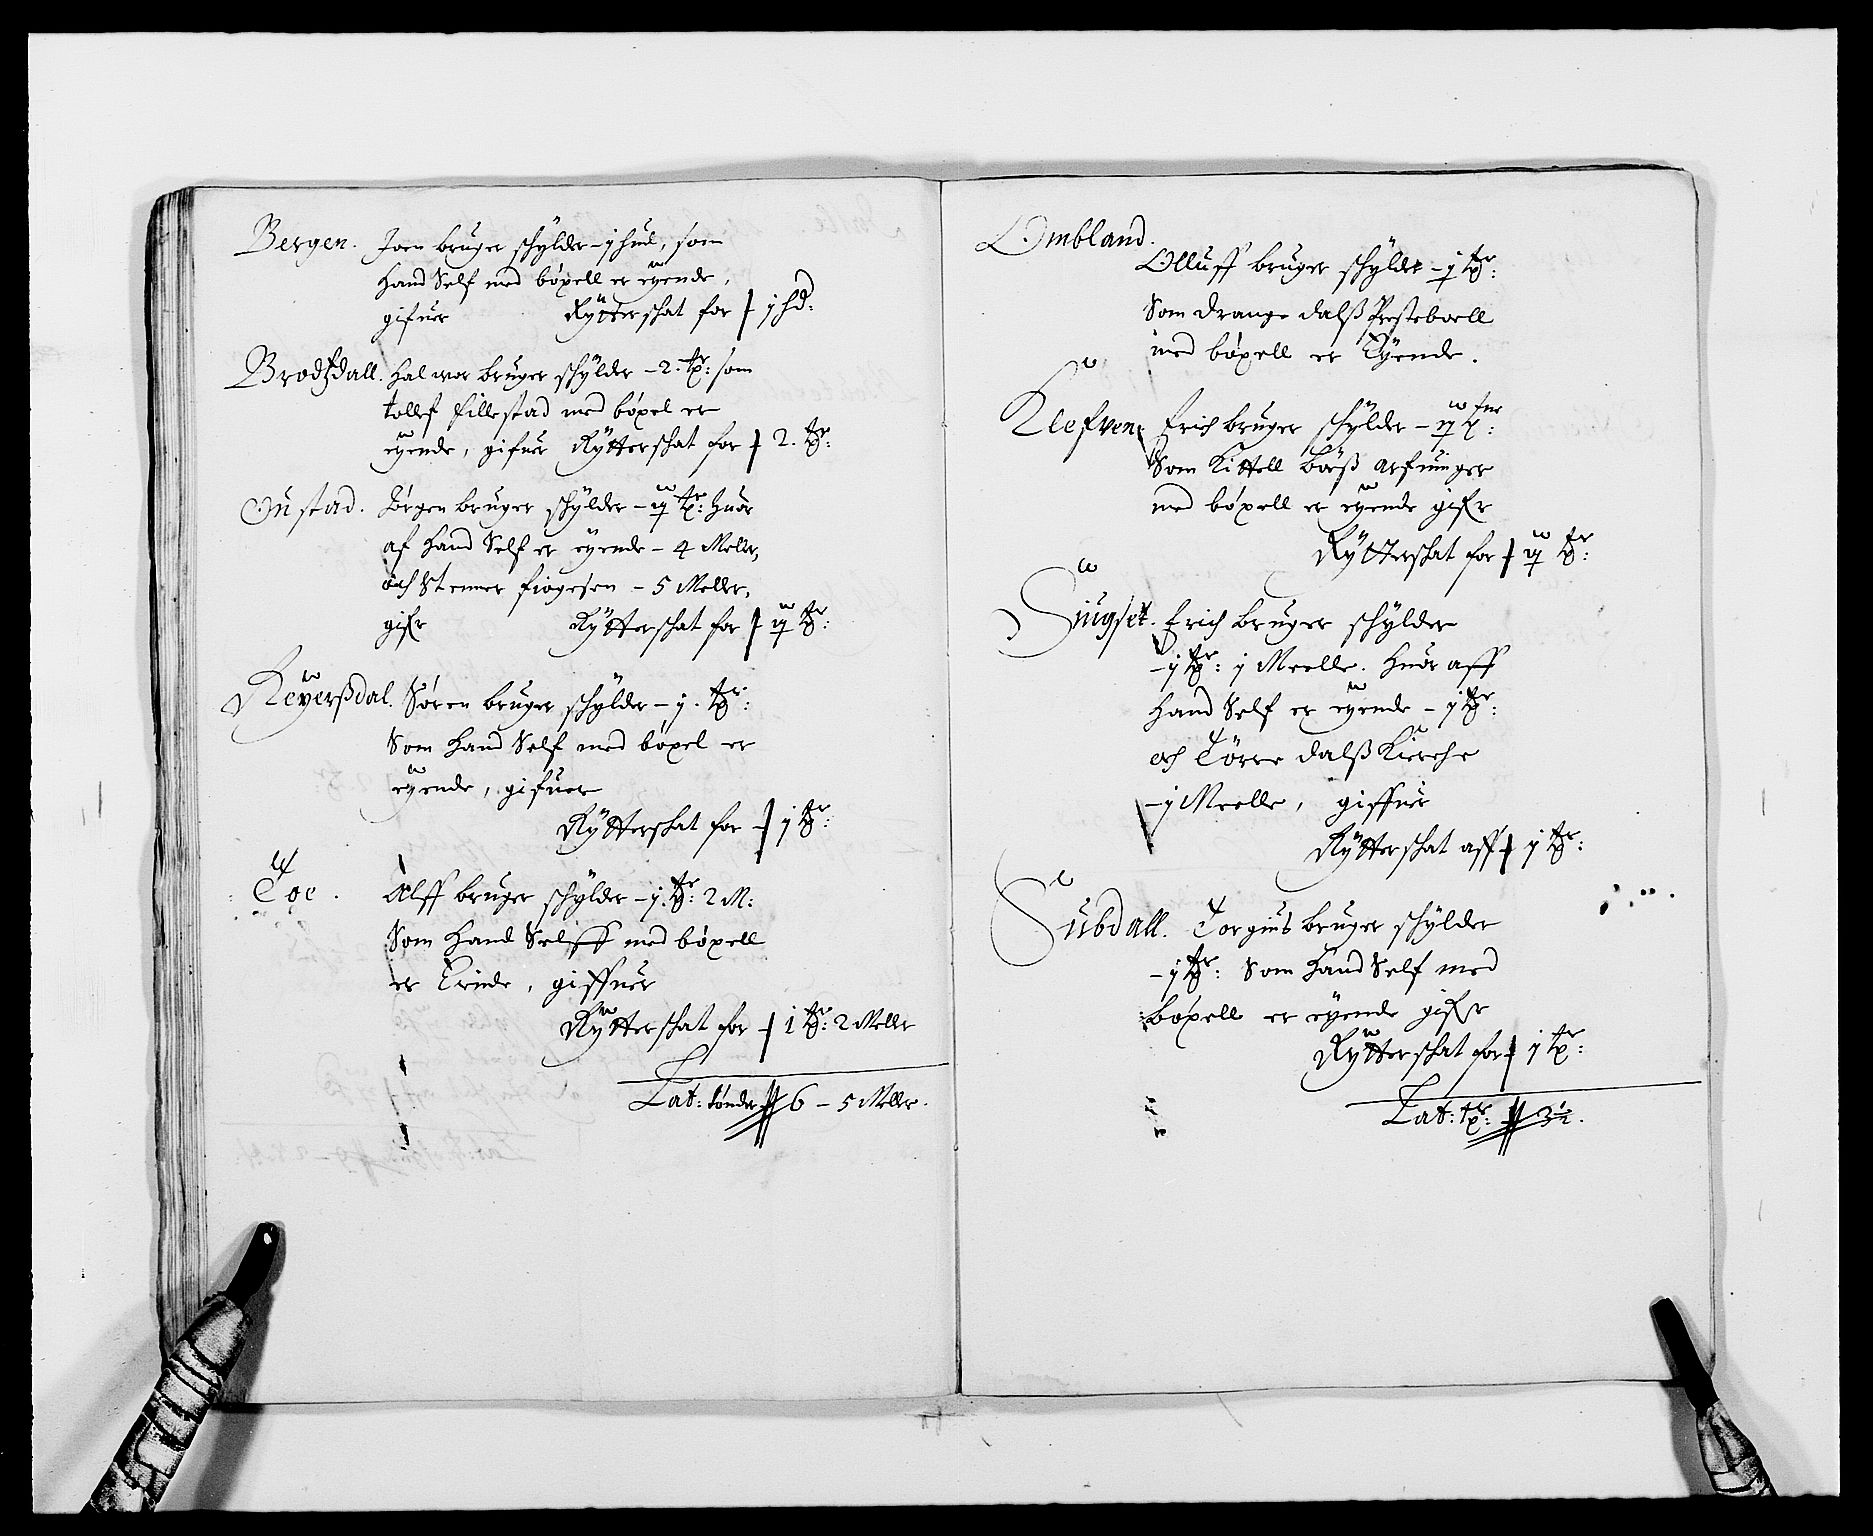 Bergen. Joen bruger schylder – j hud, som
hand Self med böxell er eyende,
gifuer Rytterschat for j hd:
Brodtzdall. Halwor bruger schylder – 2. tr: som
tollef fillestad med böxel er
eyende, gifuer Rytterschat for 2. tr:
Oustad. Jörgen bruger schylder – tr: huor
af hand Self er eyende – 4 Meller,
och Stenner – 5 Meller,
gifr Rytterschat for tr:
Reyerßdal. Sören bruger schylder – j. tr:
Som hand Self med böxel er
eyende, gifuer
Rytterschat for j tr:
Toe. Alff bruger schylder – j. tr: 2 M:
Som hand Selff med böxell
er Eiende, giffuer
Rytterschat for 1 tr: 2 Meller
Lat: tönder 6 – 5 Meller.
Ombland.
Olluff bruger schylder – tr:
Som drange dalß Presteboell
med böxell er Eyende.
Klefven. Erich bruger schylder – tr:
Som Kittell arfuinger
med böxell er eyende gifr
Rytterschat for tr:
Siugset. Erich bruger schylder
– j tr: j Meelle. huor aff
hand Self er eyende – j tr:
och Törre dalß Kierche
– j Meelle, giffuer
Rytterschat aff j tr:
Subdall. Torgius bruger schylder
– j tr: Som hand Self med
böxell er eyende gifr
Rytterschat for j tr:
Lat: tr: 3½.